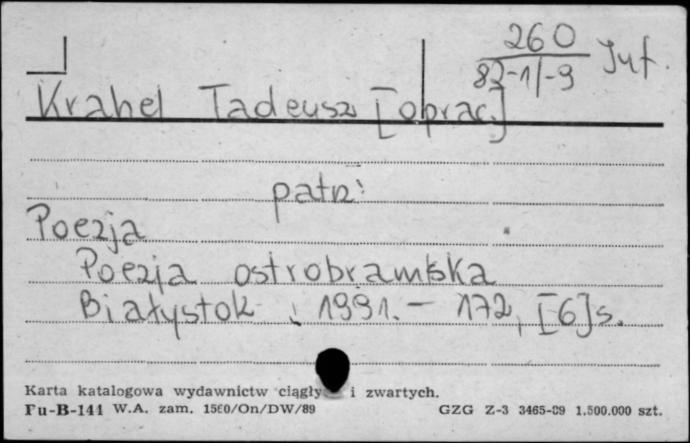 260
82-1/-9 Juf.
Krahel Tadeusz [oprac.]
patrz:
Poezja
Poezja ostrobramska
Białystok, 1991. - 172, [6] s.
Karta katalogowa wydawnictw ciągły i zwartych.
Pu-B-144 W.A. zam. 1560/On/DW/89 GZG Z-3 3465-89 1.500.000 szt.